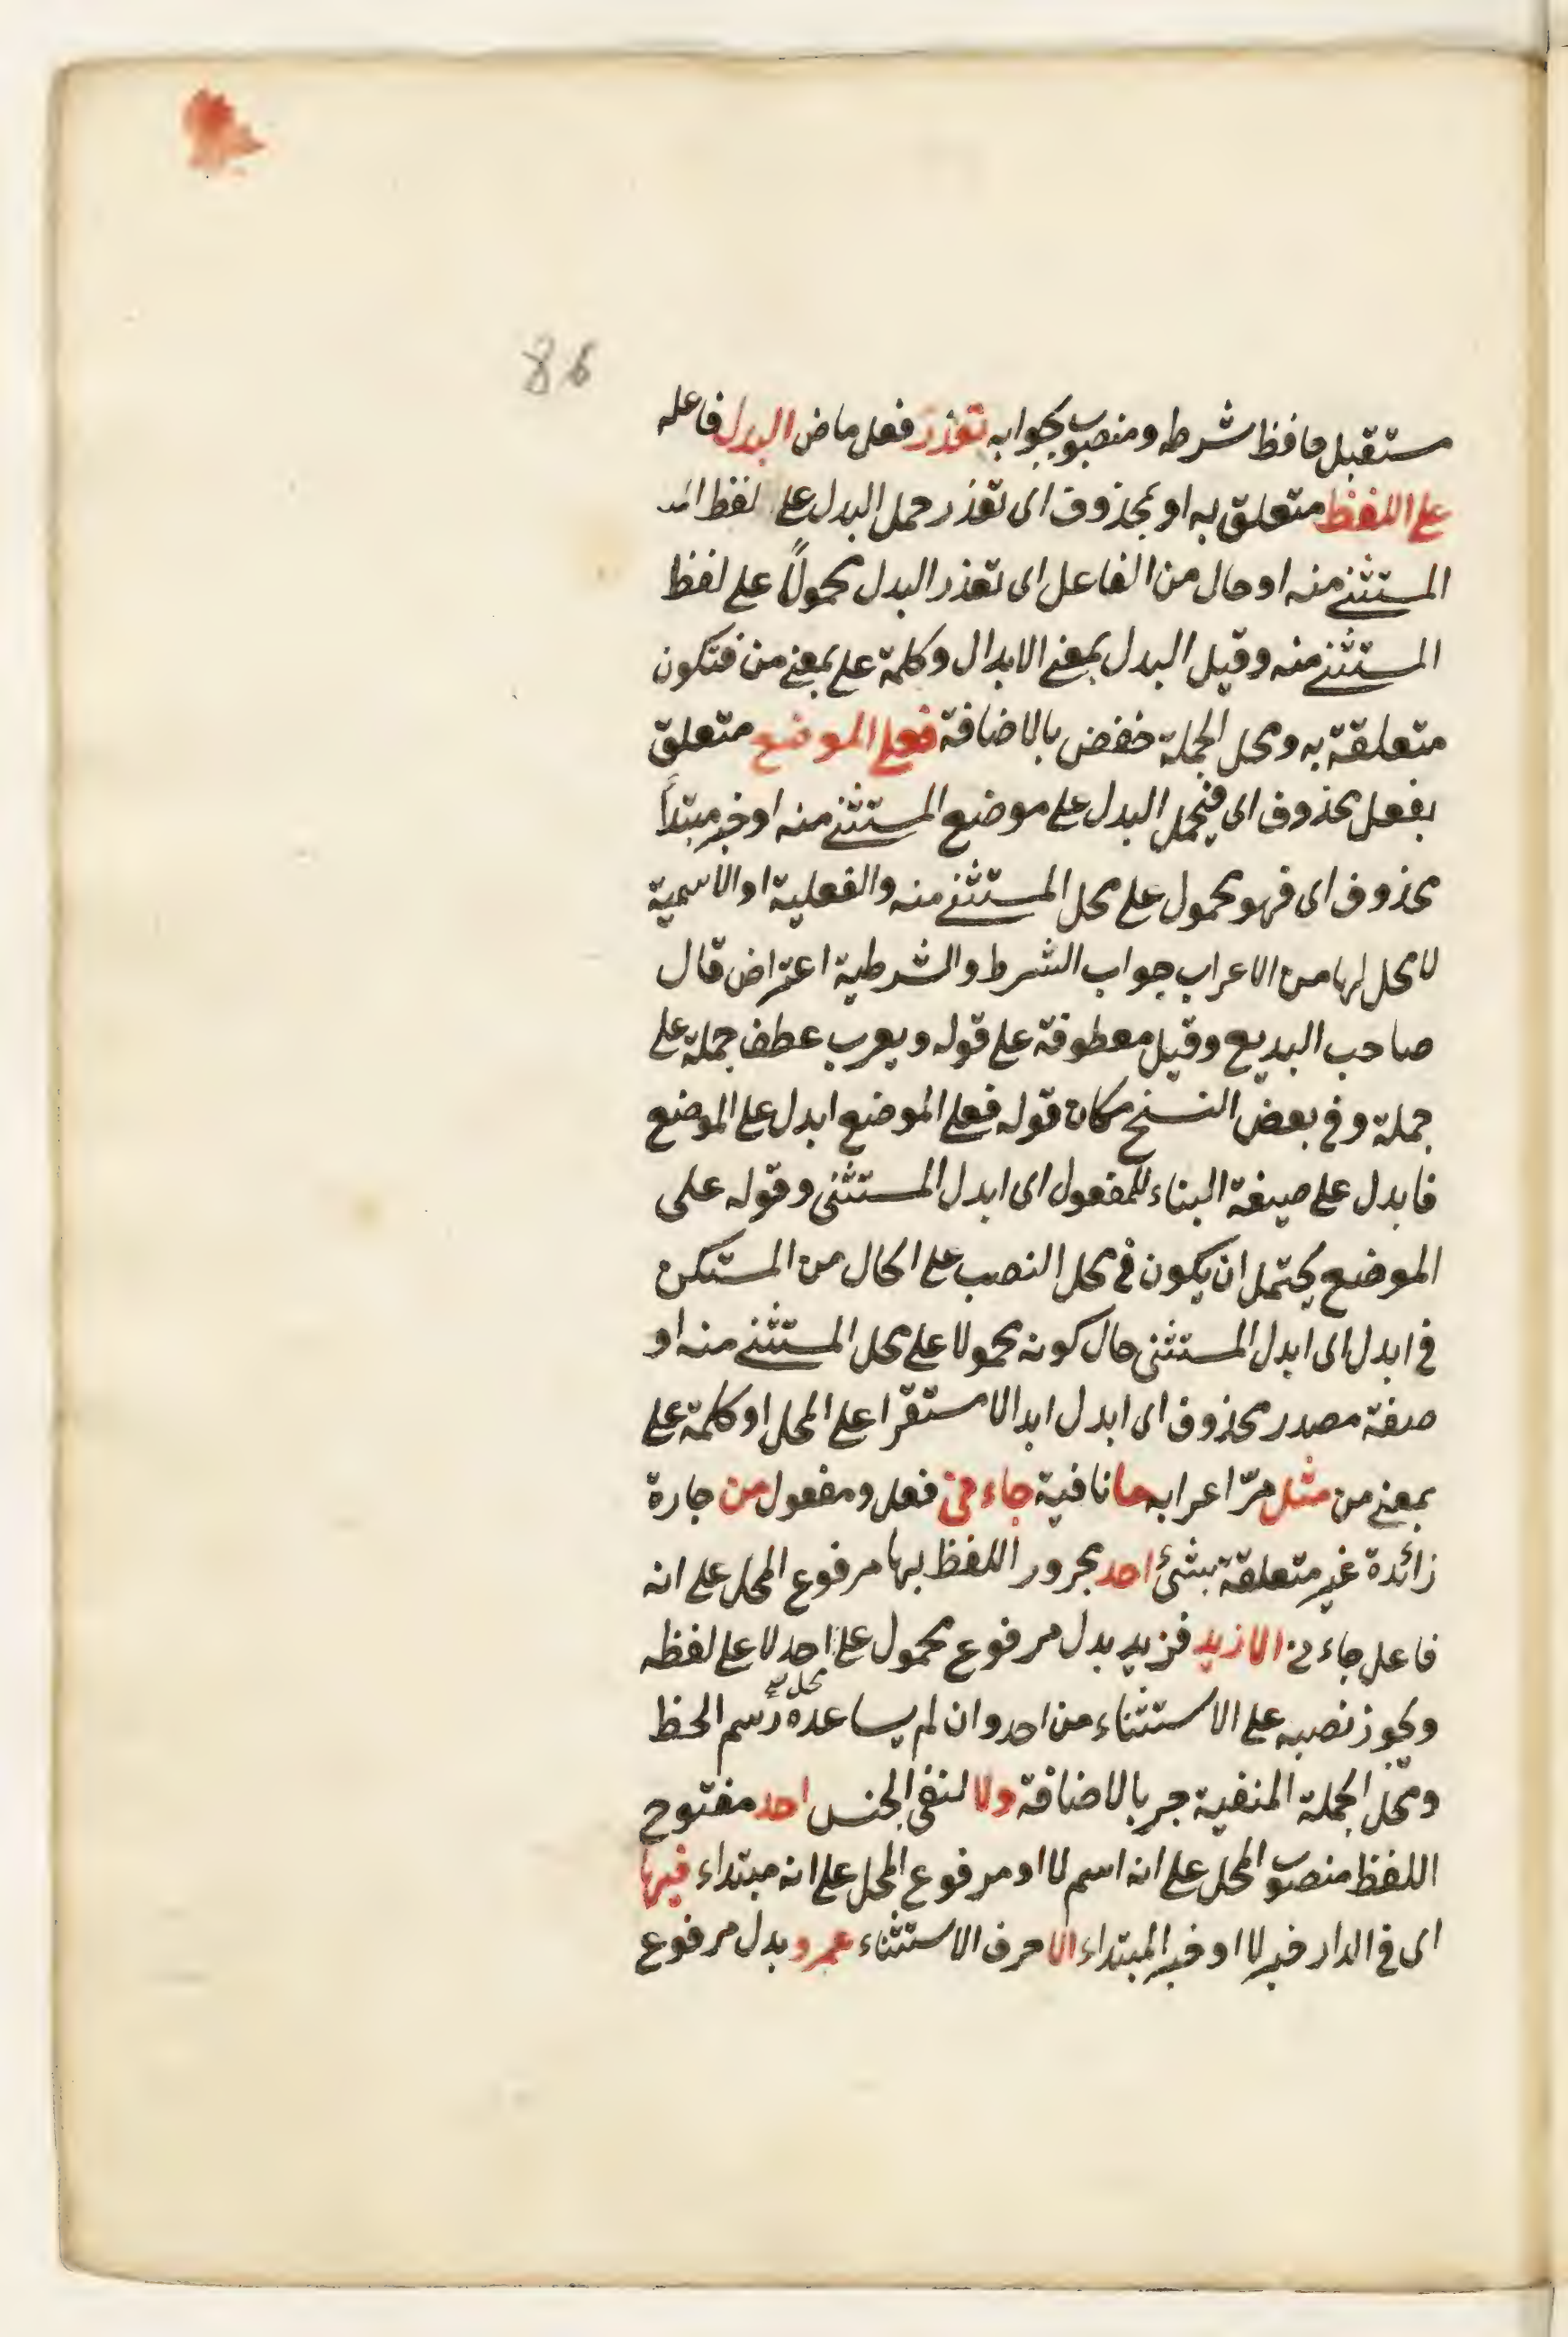 86
مستقبل حافظ شرطه ومنصوب بجوابه تعذر فعل ماض البدل فاعله
على اللفظ متعلق به او بمحذوف اى تعذر حمل البدل على لفظ
المستثنى منه او حال من الفاعل اى تعذر البدل محمولاً على لفظ
المستثنى منه وقيل البدل بمعنى الابدال وكلمة على بمعنى من فتكون
متعلقة به ومحل الجملة خفض بالاضافة فعلى الموضع متعلق
بفعل محذوف اى فيحمل البدل على موضع المستثنى منه او خبر مبتدأ
محذوف اى فهو محمول على محل المستثنى منه والفعلية او الاسمية
لا محل لها من الاعراب جواب الشرط والشرطية اعتراض قال
صاحب البديع وقيل معطوفة على قوله ويعرب عطف جملة على
جملة وفى بعض النسخ مكان قوله فعلى الموضع ابدل على الموضع
فابدل على صيغة البناء للمفعول اى ابدل المستثنى وقوله على
الموضع يحتمل ان يكون فى محل النصب على الحال من المستكن
فى ابدل اى ابدل المستثنى حال كونه محمولا على محل المستثنى منه او
صفة مصدر محذوف اى ابدل ابدالا مستقرا على المحل او كلمة على
بمعنى من مثل مرّ اعرابه ما نافية جاءنى فعل ومفعول من جارة
زائدة غير متعلقة بشئ احد مجرور اللفظ بها مرفوع المحل على انه
فاعل جاءنى الا زيد فزيد بدل مرفوع محمول على محل احد لا على لفظه
ويجوز نصبه على الاستثناء من احد وان لم يساعده رسم الخط
ومحل الجملة المنفية جر بالاضافة ولا لنفى الجنس احد مفتوح
اللفظ منصوب المحل على انه اسم لا او مرفوع المحل على انه مبتداء فيها
اى فى الدار خبر لا او خبر المبتداء الا حرف الاستثناء عمرو بدل مرفوع